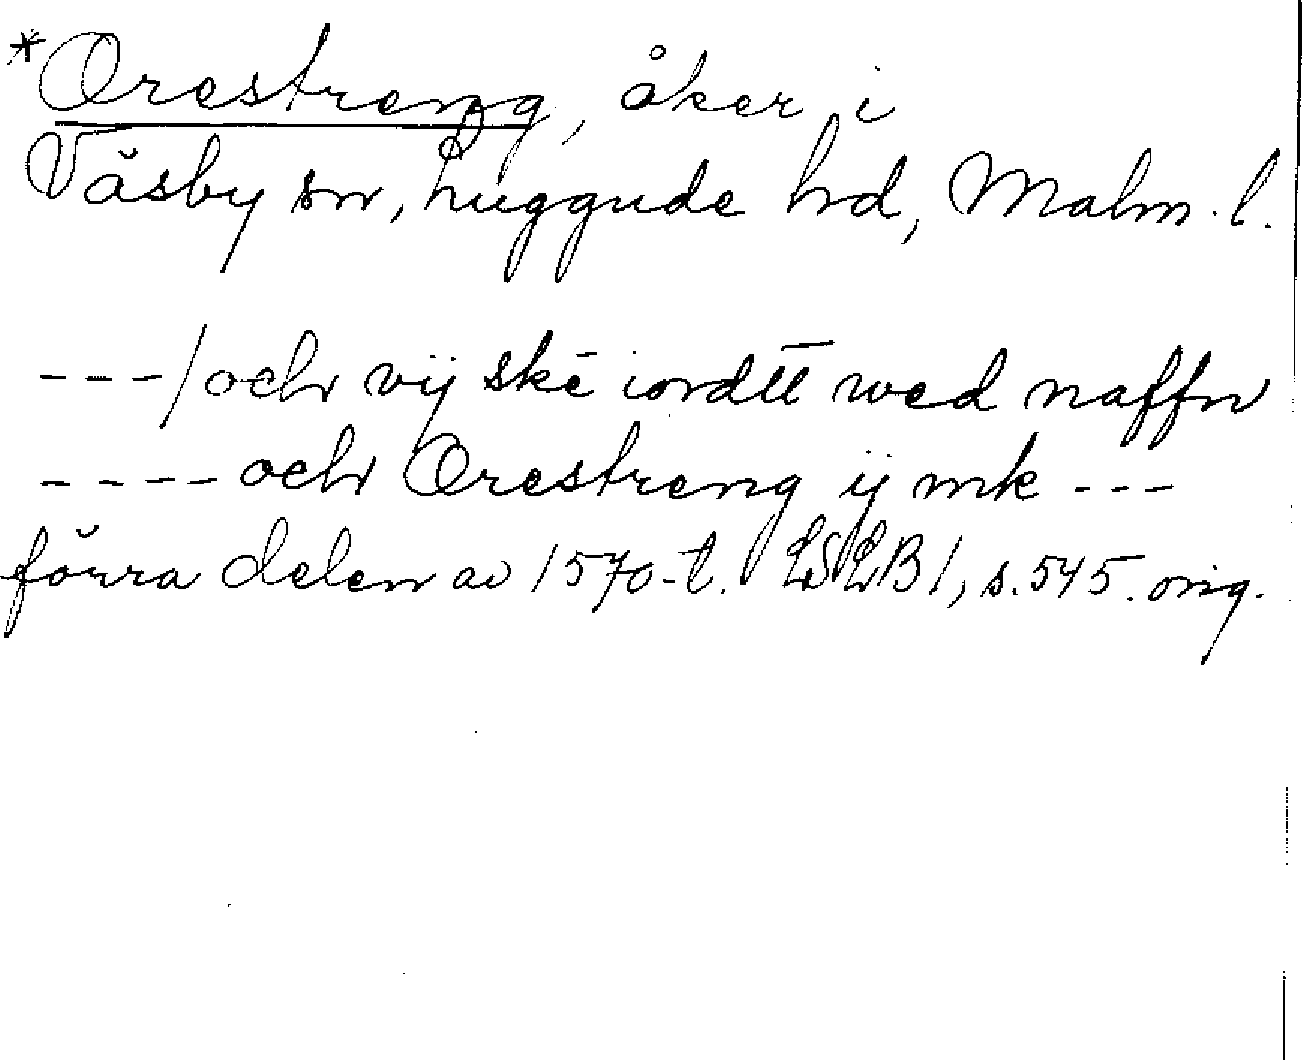 *Orestreng, åker i
Väsby sn, Luggude hd, Malm. l.
---/och vij skē iordtt wed naffn
---- och Orestreng ij mk ---
förra delen av 1570-t. LSLB1, s. 545. orig.